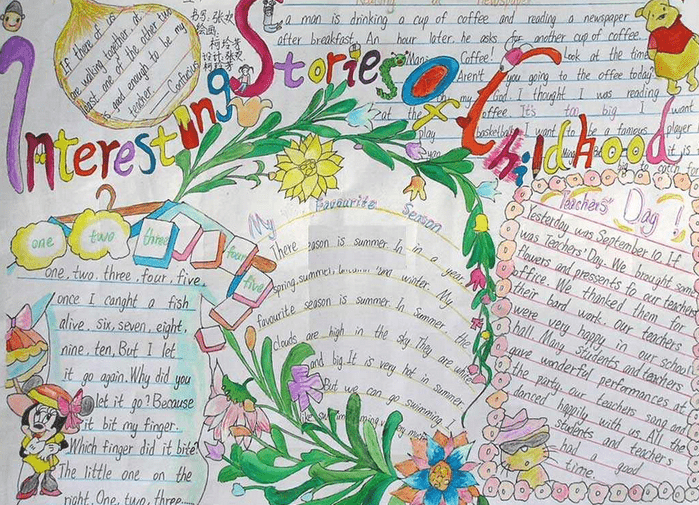 Reading a newspaper
A man is drinking a cup of coffee and reading a newspaper
after breakfast. An hour later, he asks for another cup of coffee.
Coffee! Look at the time
Aren't you going to the office today
my God. I thought I was reading
at the office It's too big I want
play basketball I want to be a famous player
If there
are walking together, at
least one of the other two
is good enough to be my
teacher Confucius
Interesting Stories of Childhood
one two three four five
one, two, three, four, five,
once I canght a fish
alive, six, seven, eight,
nine, ten, But I let
it go again. Why did you
let it go? Because
it bit my finger.
Which finger did it bite
The little one on the
right. One, two, three......
My Favourite Season
There season is summer. In in a year,
spring, summer, and winter. My
favourite season is summer. In summer, the
clouds are high in the sky. They are white
and big. It is very hot in summer.
But we can go swimming. I
Teachers' Day!
Yesterday was September 10. If
was Teachers' Day. We brought some
flowers and pressents fo our teachers
office. We thanked them for
their bard work. Our teachers
were very happy in our school
hall. Many students and teachers
gave wonderful performances at
the party. our teachers song and
danced happily with us. All the
students and teachers
had a good
time.